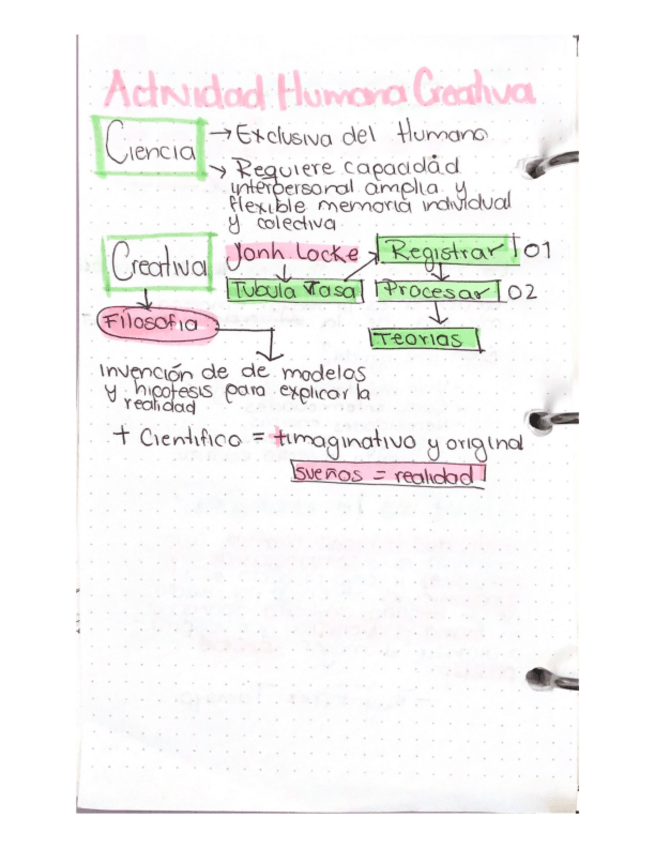 Actividad Humana Creativa
Ciencia
→ Exclusiva del Humano
→ Requiere capacidad
interpersonal amplia y
flexible memoria individual
y colectiva
Creativa
Jonh Locke
Registrar 01
Tubula rasa
Procesar 02
Filosofia
Teorias
invención de de modelos
y hipotesis para explicar la
realidad
+ Cientifico = +imaginativo y original
sueños = realidad